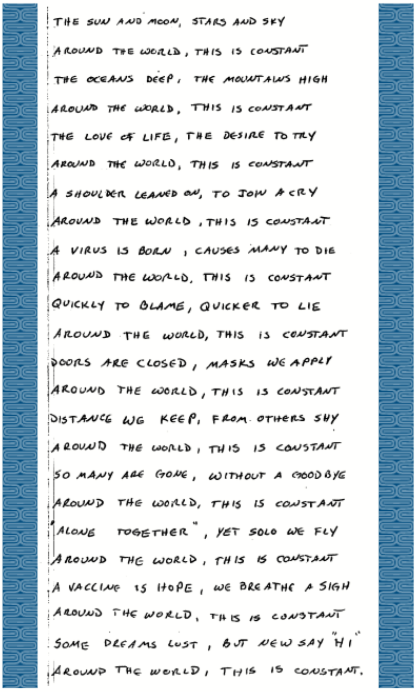 THE SUN AND MOON, STARS AND SKY
AROUND THE WORLD, THIS IS CONSTANT
THE OCEANS DEEP, THE MOUNTAINS HIGH
AROUND THE WORLD, THIS IS CONSTANT
THE LOVE OF LIFE, THE DESIRE TO TRY
AROUND THE WORLD, THIS IS CONSTANT
A SHOULDER LEANED ON, TO JOIN A CRY
AROUND THE WORLD, THIS IS CONSTANT
A VIRUS IS BORN, CAUSES MANY TO DIE
AROUND THE WORLD, THIS IS CONSTANT
QUICKLY TO BLAME, QUICKER TO LIE
AROUND THE WORLD, THIS IS CONSTANT
DOORS ARE CLOSED, MASKS WE APPLY
AROUND THE WORLD, THIS IS CONSTANT
DISTANCE WE KEEP, FROM OTHERS SHY
AROUND THE WORLD, THIS IS CONSTANT
SO MANY ARE GONE, WITHOUT A GOODBYE
AROUND THE WORLD, THIS IS CONSTANT
"ALONE TOGETHER", YET SOLO WE FLY
AROUND THE WORLD, THIS IS CONSTANT
A VACCINE IS HOPE, WE BREATHE A SIGH
AROUND THE WORLD, THIS IS CONSTANT
SOME DREAMS LOST, BUT NEW SAY "HI"
AROUND THE WORLD, THIS IS CONSTANT.